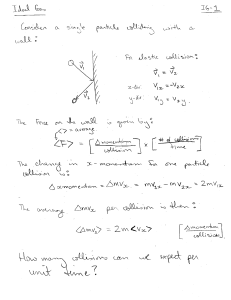 Ideal Gas
IG-1
Consider a single particle colliding with a
wall:
For elastic collision:
V₁ = V₂
x-dir: V₁ₓ = -V₂ₓ
y-dir: V₁y = V₂y
The Force on the wall is given by:
<> = average
<F> = [Δmomentum / collision] × [# of collisions / time]
The change in x-momentum for one particle
collision is:
Δ xmomentum = Δmvₓ = mv₁ₓ - mv₂ₓ = 2mv₁ₓ
The average Δmvₓ per collision is then:
<Δmvₓ> = 2m<vₓ> [Δmomentum / collision]
How many collisions can we expect per
unit time?